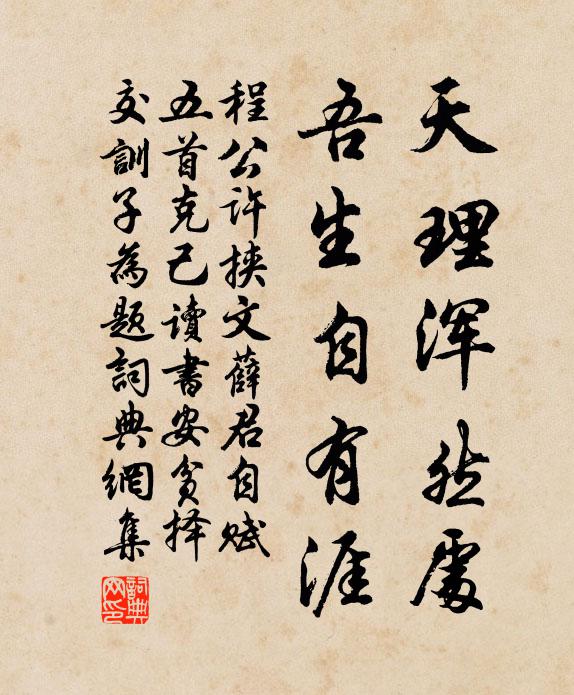 天理浑然处
吾生自有涯
程公许挟文薛君自赋
五首克己读书安贫择
交训子为题词典网集
詞典网印